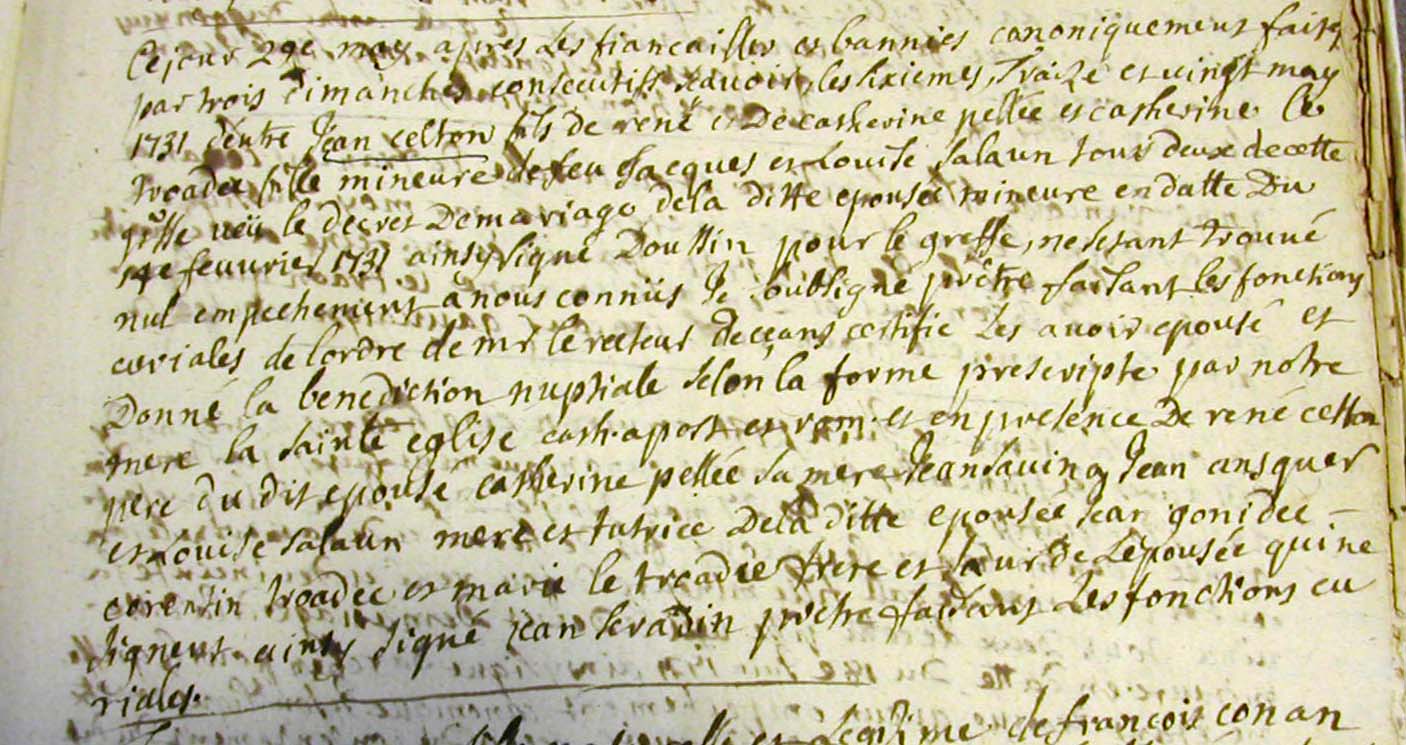 Ce jour 29e may apres les fiancailles et bannies canoniquement faites
par trois dimanches consecutifs scavoir les sixiemes, traize et vingt may
1731 dentre Jean celton fils de rené et De catherine pellée et catherine le
troadec fille mineure de feu Jacques et Louise salaun tous deux de cette
psse veü le decret De mariage de la ditte epousée mineure en datte Du
14e feuvrier 1731 ainsy signé Doussin pour le greffe, ne sestant trouvé
nul empechement a nous connüs Je soubsigné prêtre faisant les fonctions
curiales de lordre de mr le recteur de ceans certifie Les avoir epousé et
Donné la benediction nuptiale selon la forme prescripte par notre
mere la sainte eglise cath. apost et rom. et en presence De rené celton
pere du dit epousé catherine pellée sa mere Jean savina Jean ansquer
et Louise salaun mere et tutrice De la ditte epousée Jean gonidec
corentin troadec et marie le troadec frere et sœur de Lepousée qui ne
signent ainsy signé jean pretre faisant Les fonctions cu
riales.
de françois conan